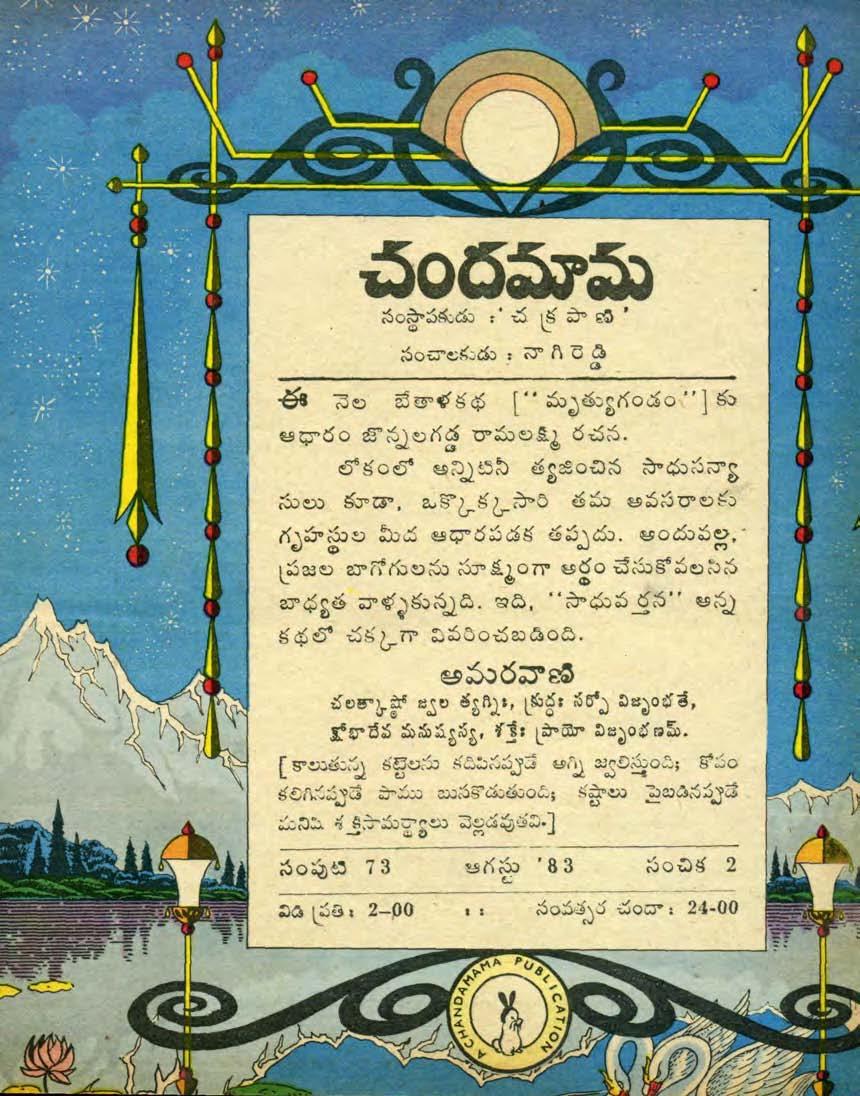 చందమామ
సంస్థాపకుడు : 'చ క్ర పా ణి '
సంచాలకుడు : నా గి రె డ్డి
ఈ నెల బేతాళకథ [“మృత్యుగండం”] కు
ఆధారం జొన్నలగడ్డ రామలక్ష్మి రచన.
లోకంలో అన్నిటినీ త్యజించిన సాధుసన్యా
సులు కూడా, ఒక్కొక్కసారి తమ అవసరాలకు
గృహస్థుల మీద ఆధారపడక తప్పదు. అందువల్ల,
ప్రజల బాగోగులను సూక్ష్మంగా అర్థం చేసుకోవలసిన
బాధ్యత వాళ్ళకున్నది. ఇది, “సాధువర్తన” అన్న
కథలో చక్కగా వివరించబడింది.
అమరవాణి
చలత్కాష్ఠో జ్వల త్యగ్నిః, క్రుద్ధః సర్పో విజృంభతే,
క్షోభాదేవ మనుష్యస్య, శక్తేః ప్రాయో విజృంభణమ్.
[కాలుతున్న కట్టెలను కదిపినప్పుడే అగ్ని జ్వలిస్తుంది; కోపం
కలిగినప్పుడే పాము బుసకొడుతుంది; కష్టాలు పైబడినప్పుడే
మనిషి శక్తిసామర్థ్యాలు వెల్లడవుతవి.]
సంపుటి 73 ఆగస్టు '83 సంచిక 2
విడి ప్రతి: 2-00 : : సంవత్సర చందా: 24-00
A CHANDAMAMA PUBLICATION